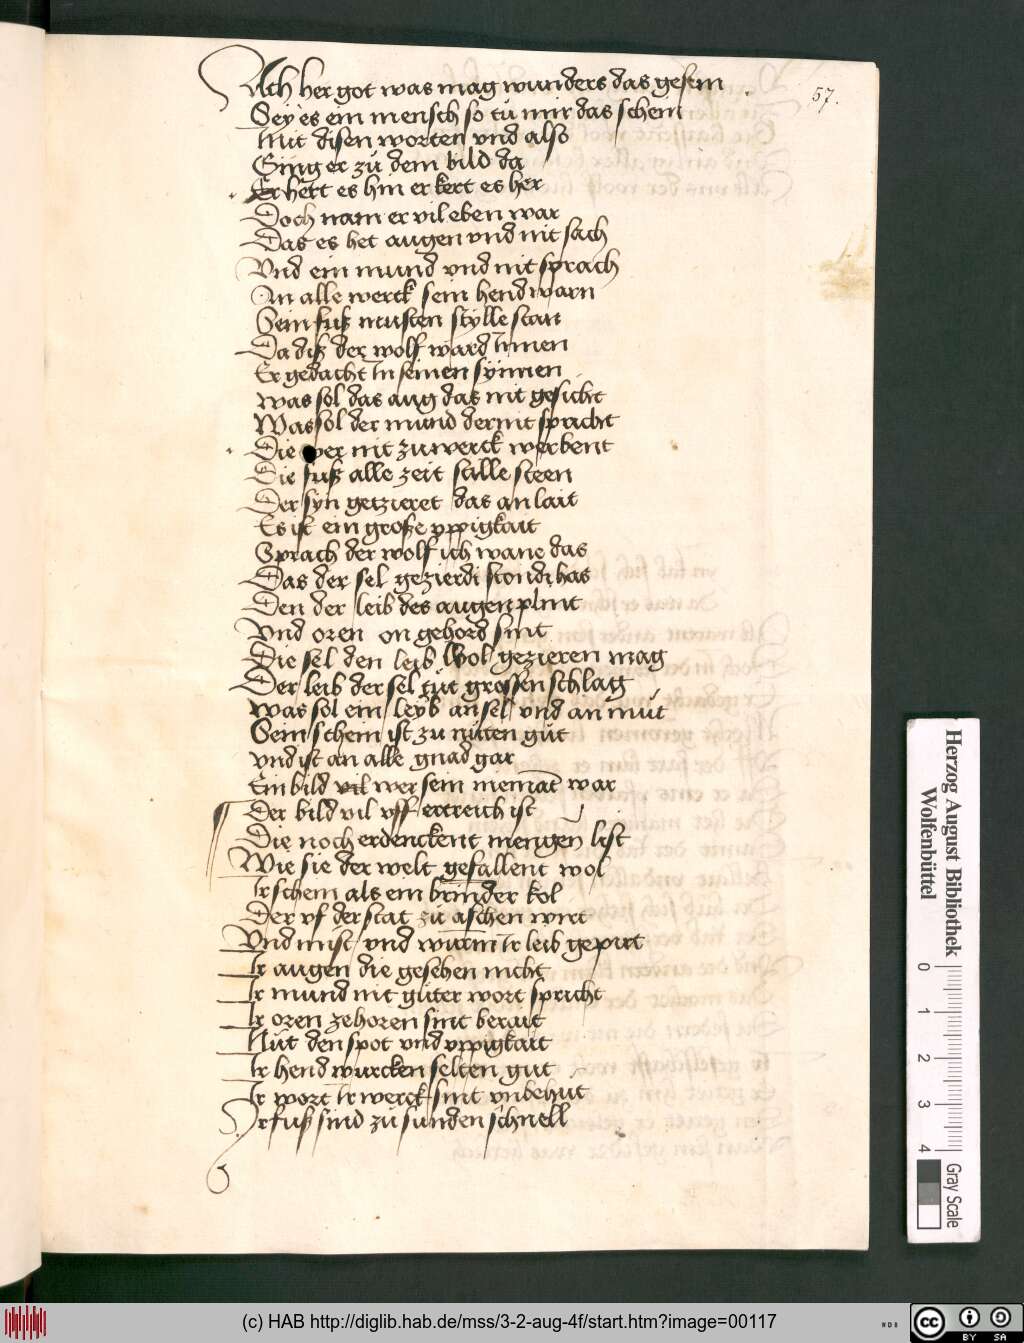 57.
Ach her got was mag wunders das gesein
Sey es ein mensch so tů mir das schein
Mit disen worten vnd also
Ging er zů dem bild da
Er hert es hin er kert es her
Doch nam er vil eben war
Das es het augen vnd nit sach
Vnd ein mund vnd nit sprach
An alle werck sein hend warn
Sein fuß musten stylle stan
Da diß der wolf ward Innen
Er gedacht In seinen synnen
was sol das aug das nit gesicht
Was sol der mund der nit spricht
Die nit zu werck werbent
Die fuß alle zeit stille steen
Der syn getzieret das anlait
Es ist ein große yppigkait
Sprach der wolf ich wane das
Das der sel gezierdi stondi bas
Den der leib des augen plint
Vnd oren on gehord sint
Die sel den leib wol gezieren mag
Der leib der sel tůt grossen schlag
Was sol ein leyb an sel vnd an můt
Sein schein ist zu nuten gůt
vnd ist an alle gnad gar
Ein bild vil wer sein niemāt war
Der bild vil vff ertreich ist
Die noch erdenckent mengen list
Wie sie der welt gefallent wol
Ir schein als ein brinnder kol
Der vf der stat zů aschen wirt
Vnd mist vnd wurm Ir leib gepirt
Ir augen die gesehen nicht
Ir mund nit gůter wort spricht
Ir oren zehoren sint berait
Nůt den spot vnd yppigkait
Ir hend wurcken selten gut
Ir wort Ir werck sint vnbehut
Ir fuß sind zů sunden schnell
Herzog August Bibliothek
Wolfenbüttel
0 1 2 3 4
Gray Scale
(c) HAB http://diglib.hab.de/mss/3-2-aug-4f/start.htm?image=00117
cc BY SA